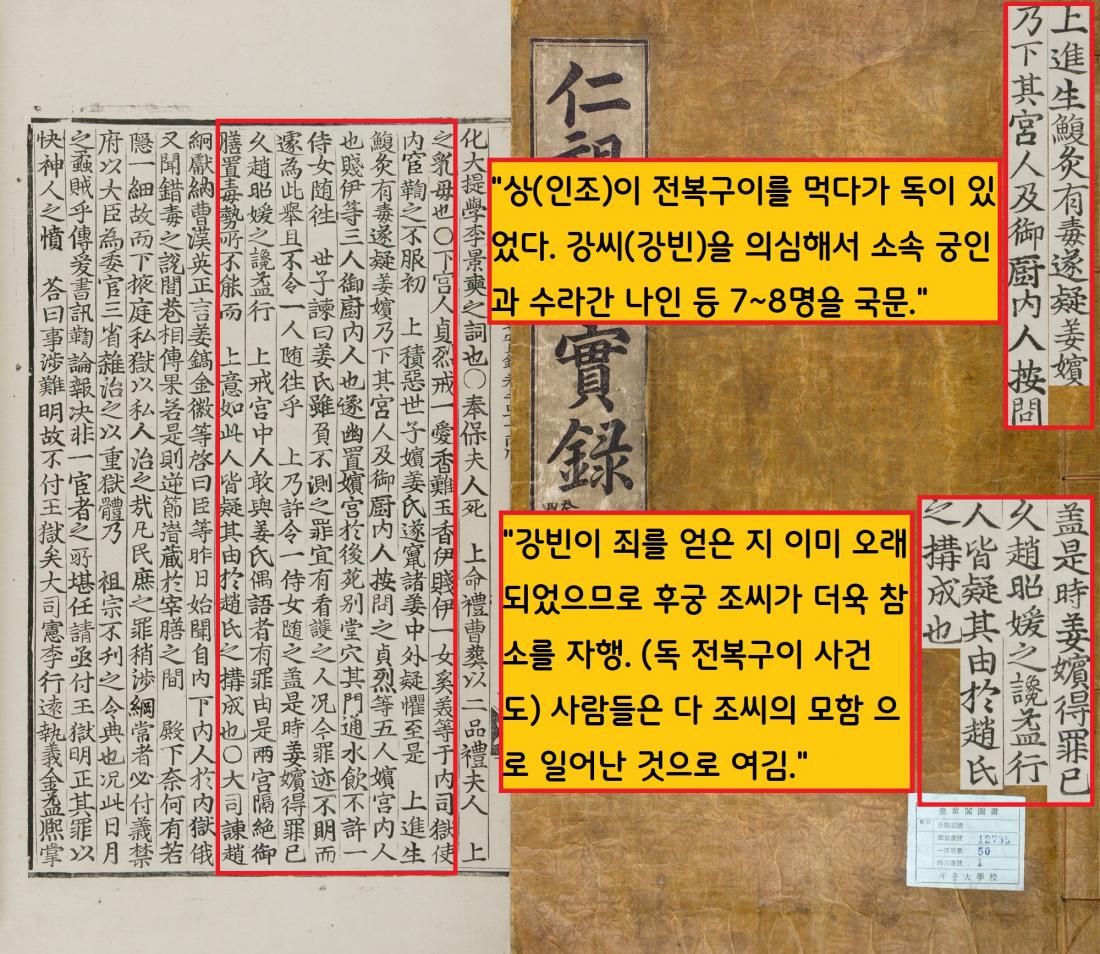 化大提學李景奭之詞也○奉保夫人死 上命禮曹葬以二品禮夫人 上
之乳母也○下宮人貞烈戒一愛香難玉香伊賤伊一女奚義等于內司獄使
內官鞫之不服初 上積惡世子嬪姜氏遂竄諸姜中外疑懼至是 上進生
鰒灸有毒遂疑姜嬪乃下其宮人及御廚內人按問之貞烈等五人嬪宮內人
也賤伊等三人御廚內人也遂幽置嬪宮於後苑別堂穴其門通水飲不許一
侍女随徃 世子諫曰姜氏雖負不測之罪宜有看護之人况今罪迹不明而
遽為此擧且不令一人随徃乎 上乃許令一侍女随之盖是時姜嬪得罪已
久趙昭媛之讒益行 上戒宮中人敢與姜氏偶語者有罪由是兩宮隔絶御
膳置毒勢所不能而 上意如此人皆疑其由於趙氏之搆成也○大司諫趙
絅獻納曹漢英正言姜鎬金徽等啓曰臣等昨日始聞自內下內人於內獄俄
又聞錯毒之說閭巷相傳果若是則逆節潛藏於宰膳之間 殿下奈何有若
隱一細故而下掖庭私獄以私人治之㢤凡民庶之罪稍涉綱常者必付義禁
府以大臣為委官三省雜治之以重獄體乃 祖宗不刊之令典也况此日月
之蝨賊乎傳爰書訊鞫論報決非一宦者之所堪任請亟付王獄明正其罪以
快神人之憤 荅曰事涉難明故不付王獄矣大司憲李行遠執義金益熙掌
仁祖
實錄
"상(인조)이 전복구이를 먹다가 독이 있
었다. 강씨(강빈)을 의심해서 소속 궁인
과 수라간 나인 등 7~8명을 국문."
上進生鰒灸有毒遂疑姜嬪
乃下其宮人及御廚內人按問
"강빈이 죄를 얻은 지 이미 오래
되었으므로 후궁 조씨가 더욱 참
소를 자행. (독 전복구이 사건
도) 사람들은 다 조씨의 모함 으
로 일어난 것으로 여김."
盖是時姜嬪得罪已
久趙昭媛之讒益行
人皆疑其由於趙氏
之搆成也
奎章閣圖書
12735
50
1
서울大學校